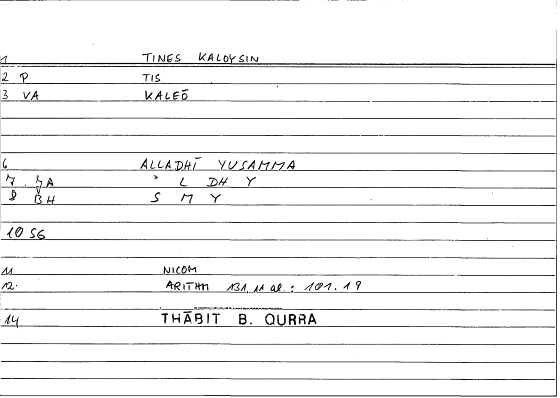 1 TINES KALOYSIN
2 P TIS
3 VA KALEŌ
6 ALLADHĪ YUSAMMA
7 . ȜA ʾ L DH Y
8 BH S M Y
10 SG
11 NICOM
12. ARITHM 131, 11 al. : 101.19
14 THĀBIT B. QURRA